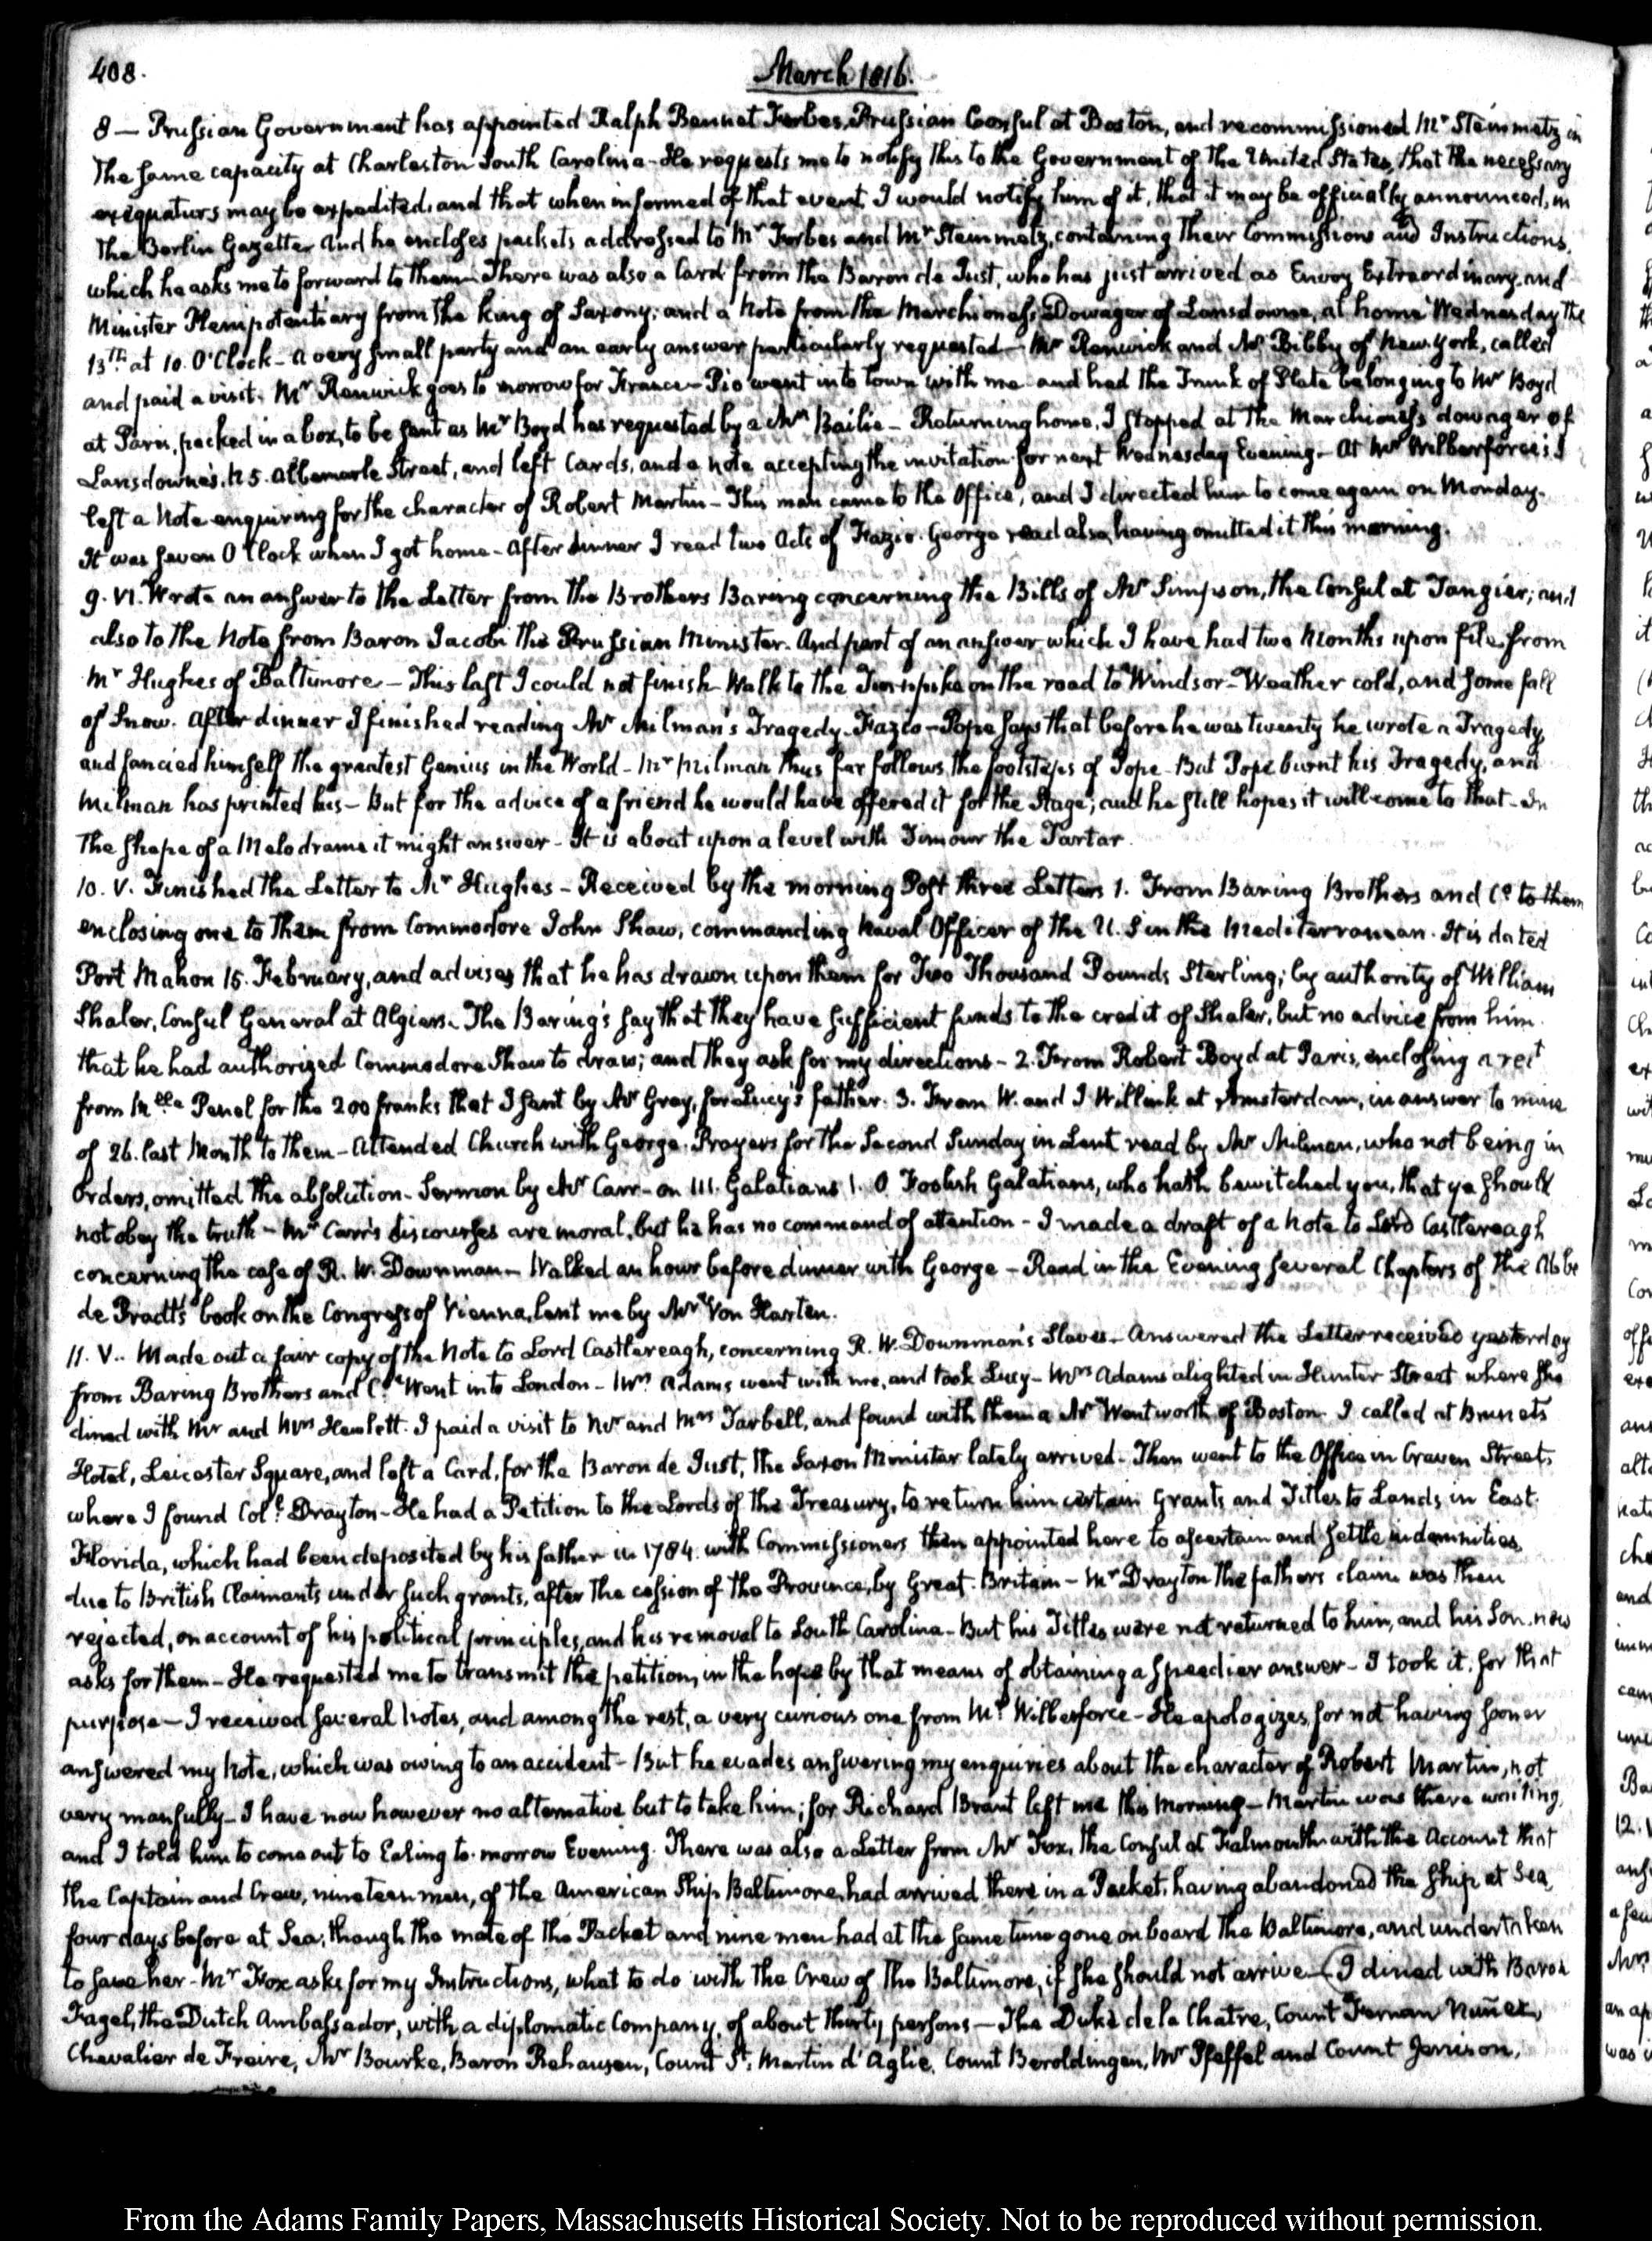 408.
March 1816.
8 — Prussian Government has appointed Ralph Bennet Forbes, Prussian Consul at Boston, and recommissioned Mr Steinmetz in
the same capacity at Charleston South Carolina - He requests me to notify this to the Government of the United States, that the necessary
exequaturs may be expedited, and that when informed of that event, I would notify him of it, that it may be officially announced, in
the Berlin Gazette. And he encloses packets addressed to Mr Forbes and Mr Steinmetz, containing their Commissions and Instructions,
which he asks me to forward to them - There was also a Card from the Baron de Just, who has just arrived as Envoy Extraordinary and
Minister Plenipotentiary from the king of Saxony; and a Note from the Marchioness Dowager of Lansdowne, at home Wednesday the
13th at 10. O'Clock - a very small party and an early answer particularly requested - Mr Renwick and Mr Bibby of New York, called
and paid a visit. Mr Renwick goes to morrow for France - Pio went into town with me and had the Trunk of Plate belonging to Mr Boyd
at Paris, packed in a box, to be sent as Mr Boyd has requested by a Mr Bailie - Returning home, I stopped at the Marchioness dowager of
Lansdowne's. N 5. Albemarle Street, and left Cards, and a note accepting the invitation for next Wednesday Evening - At Mr Wilberforce's I
left a Note enquiring for the character of Robert Martin - This man came to the Office, and I directed him to come again on Monday.
It was seven O'Clock when I got home - After dinner I read two Acts of Fazio. George read also, having omitted it this morning.
9. VI. Wrote an answer to the Letter from the Brothers Baring concerning the Bills of Mr Simpson, the Consul at Tangier; and
also to the Note from Baron Jacobi the Prussian Minister. And part of an answer which I have had two Months upon file, from
Mr Hughes of Baltimore - This last I could not finish. Walk to the Turnpike on the road to Windsor - Weather cold, and some fall
of Snow. After dinner I finished reading Mr Milman's Tragedy. Fazio - Pope says that before he was twenty he wrote a Tragedy,
and fancied himself the greatest Genius in the World - Mr Milman thus far follows the footsteps of Pope - But Pope burnt his Tragedy, and
Milman has printed his - But for the advice of a friend he would have offered it for the Stage; and he still hopes it will come to that - In
the shape of a Melodrame it might answer - It is about upon a level with Timour the Tartar.
10. V. Finished the Letter to Mr Hughes - Received by the morning Post three Letters 1. From Baring Brothers and Co to them
enclosing one to them from Commodore John Shaw, commanding Naval Officer of the U. S in the Mediterranean. It is dated
Port Mahon 15. February, and advises that he has drawn upon them for Two Thousand Pounds Sterling; by authority of William
Shaler, Consul General at Algiers. The Baring's say that they have sufficient funds to the credit of Shaler, but no advice from him
that he had authorized Commodore Shaw to draw; and they ask for my directions - 2. From Robert Boyd at Paris, enclosing a rect
from Melle Penel for the 200 franks that I sent by Mr Gray, for Lucy's father. 3. From W. and J Willink at Amsterdam, in answer to mine
of 26. last Month to them - Attended Church with George. Prayers for the Second Sunday in Lent read by Mr Milman, who not being in
Orders, omitted the absolution - Sermon by Mr Carr - on III. Galatians 1. O Foolish Galatians, who hath bewitched you, that ye should
not obey the truth - Mr Carr's discourses are moral, but he has no command of attention - I made a draft of a Note to Lord Castlereagh
concerning the case of R. W. Downman - Walked an hour before dinner with George - Read in the Evening several Chapters of the Abbé
de Pradt's book on the Congress of Vienna, lent me by Mr Von Harten.
11. V. Made out a fair copy of the Note to Lord Castlereagh, concerning R. W. Downman's Slaves - Answered the Letter received yesterday
from Baring Brothers and Co. Went into London - Mrs Adams went with me, and took Lucy - Mrs Adams alighted in Hunter Street where she
dined with Mr and Mrs Hewlett. I paid a visit to Mr and Mrs Tarbell, and found with them a Mr Wentworth of Boston. I called at Brunets
Hotel, Leicester Square, and left a Card, for the Baron de Just, the Saxon Minister lately arrived. Then went to the Office in Craven Street,
where I found Coll Drayton - He had a Petition to the Lords of the Treasury, to return him certain Grants and Titles to Lands in East
Florida, which had been deposited by his father in 1784. with Commissioners then appointed here to ascertain and settle indemnities,
due to British Claimants under such grants, after the cession of the Province, by Great Britain - Mr Drayton the fathers claim was then
rejected, on account of his political principles, and his removal to South Carolina - But his Titles were not returned to him, and his Son now
asks for them - He requested me to transmit the petition, in the hope by that means of obtaining a speedier answer - I took it, for that
purpose - I received several Notes, and among the rest, a very curious one from Mr Wilberforce - He apologizes for not having sooner
answered my Note, which was owing to an accident - But he evades answering my enquiries about the character of Robert Martin, not
very manfully - I have now however no alternative but to take him; for Richard Brant left me this morning - Martin was there waiting,
and I told him to come out to Ealing to-morrow Evening. There was also a Letter from Mr Fox, the Consul at Falmouth with the Account that
the Captain and Crew, nineteen men, of the American Ship Baltimore, had arrived there in a Packet, having abandoned the ship at Sea,
four days before at Sea, though the mate of the Packet and nine men had at the same time gone on board the Baltimore, and undertaken
to save her - Mr Fox asks for my Instructions, what to do with the Crew of the Baltimore, if she should not arrive - (I dined with Baron
Fagel, the Dutch Ambassador, with a diplomatic Company, of about thirty persons - The Duke de la Chatre, Count Fernan Nuñez,
Chevalier de Freire, Mr Bourke, Baron Rehausen, Count St. Martin d'Aglie, Count Beroldingen, Mr Pfeffel and Count Jenison,
From the Adams Family Papers, Massachusetts Historical Society. Not to be reproduced without permission.